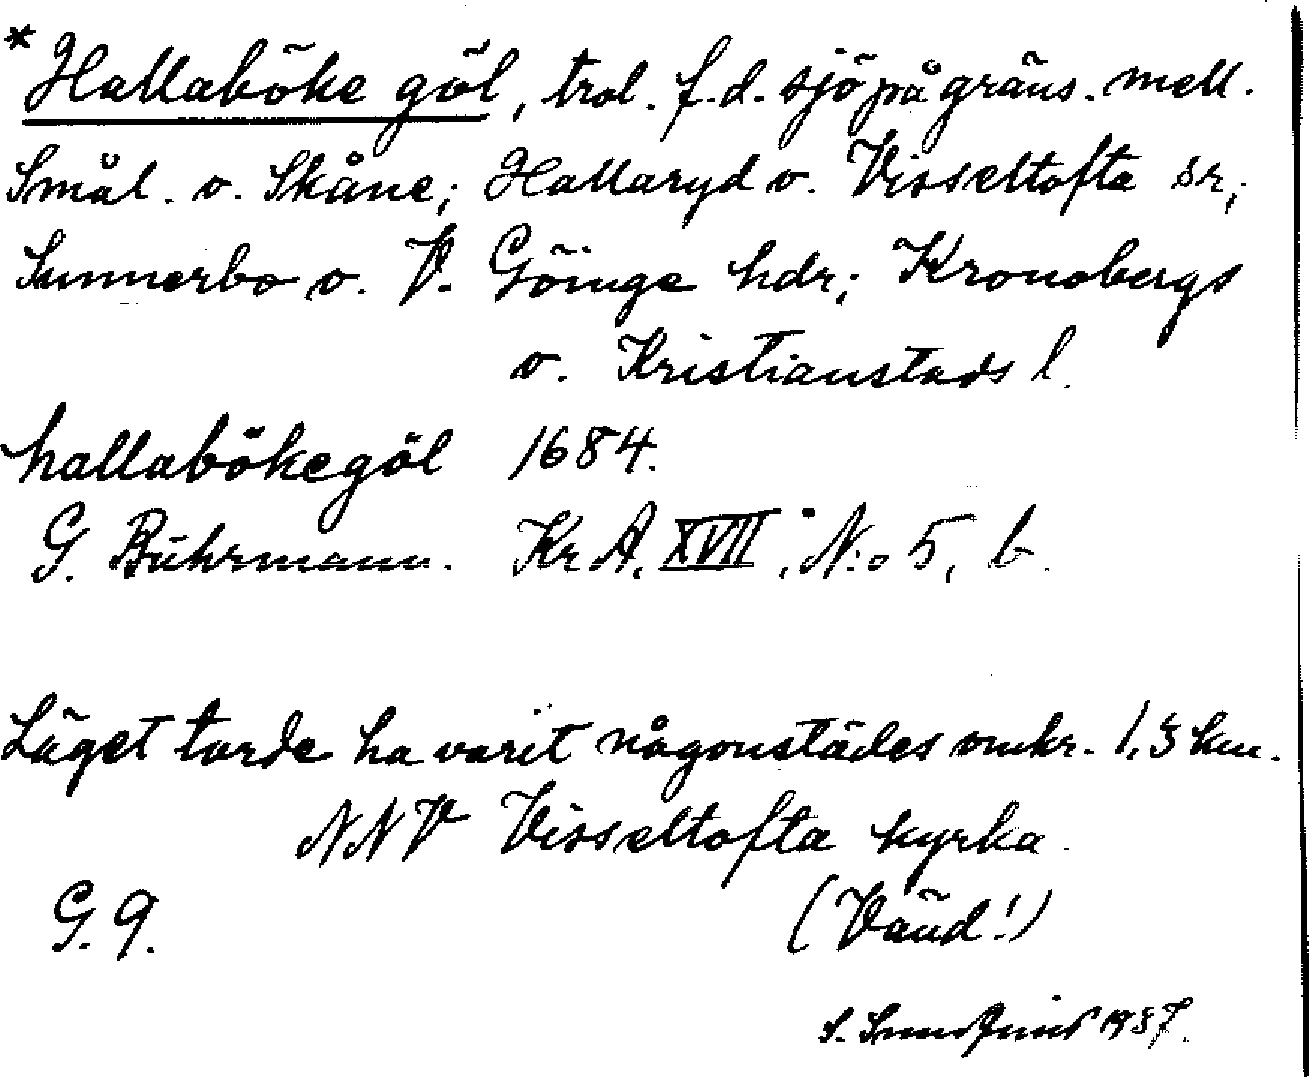 * Hallaböke göl, trol. f.d. sjö på gräns. mell.
Smål. o. Skåne; Hallaryd o. Visseltofta sr;
Sunnerbo o. V. Göinge hdr; Kronobergs
o. Kristianstads l.
hallabökegöl 1684.
G. Buhrmann. Kr A. XVII. N:o 5, b.
Läget torde ha varit någonstädes omkr. 1,5 km.
NNV Visseltofta kyrka.
G. 9. (Vänd!)
S. 1937.